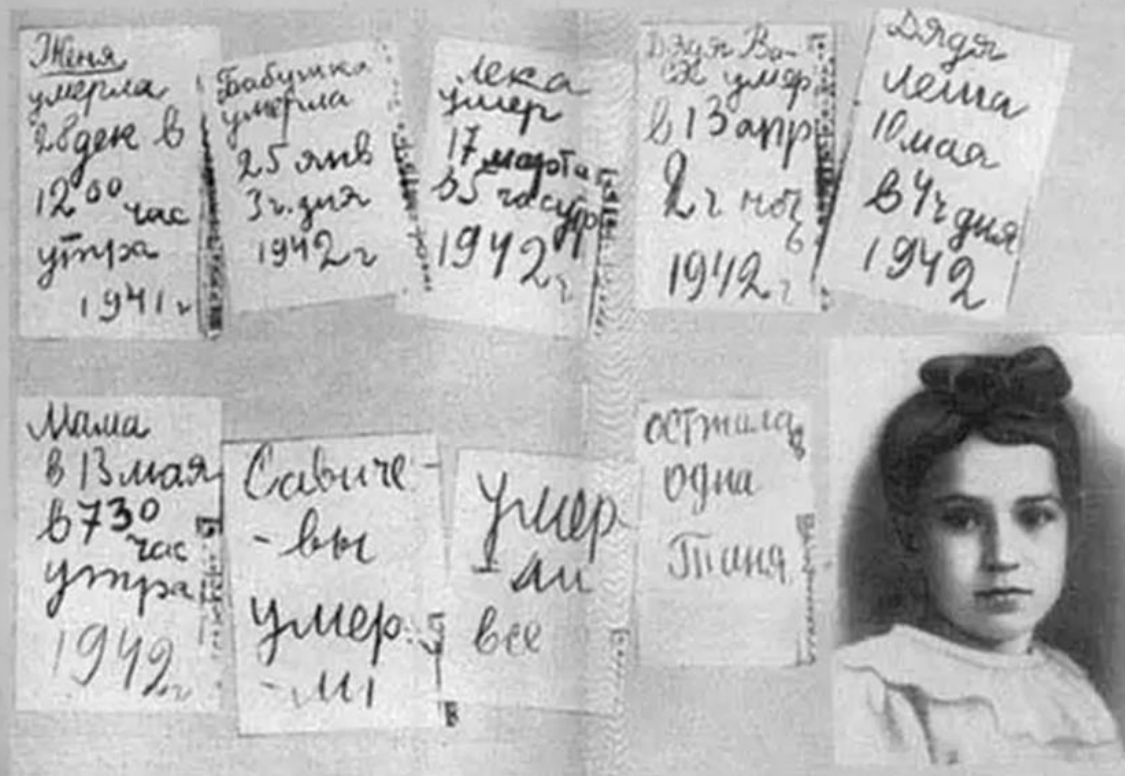 Женя
умерла
28 дек в
12 00 час
утра
1941 г
Бабушка
умерла
25 янв
3 ч. дня
1942 г
Лека
умер
17 марта
в 5 час утр
1942 г
Дядя Ва-
ся умер
в 13 апр
2 ч ноч
1942 г
Дядя
Леша
10 мая
в 4 ч дня
1942
Мама
в 13 мая
в 7 30
час
утра
1942 г
Савиче-
-вы
умер-
-ли
Умер
-ли
все
осталась
одна
Таня